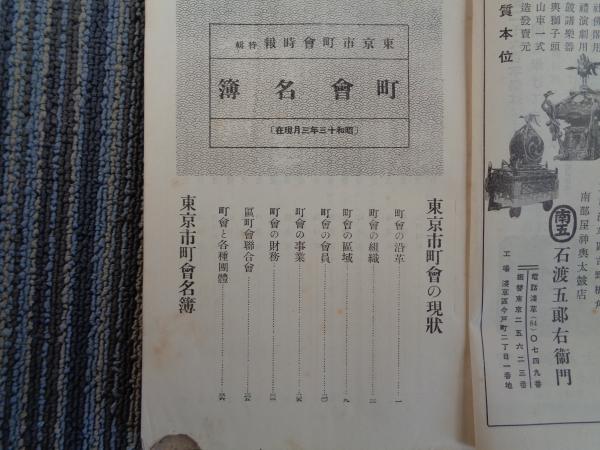 東京市町會時報特輯
町會名簿
〔昭和十三年三月現在〕
東京市町會の現狀
町會の沿革………一
町會の組織
町會の區域………九
町會の會員
町會の事業
町會の財務
區町會聯合會
町會と各種團體
東京市町會名簿
禮演劇用
鼓諸樂器
輿獅子頭
山車一式
造發賣元
質本位
南部屋神輿太鼓店
南五
石渡五郎右衞門
電話淺草(84)〇七四九番
振替東京二五六二三番
工場 淺草區今戸町二丁目一番地